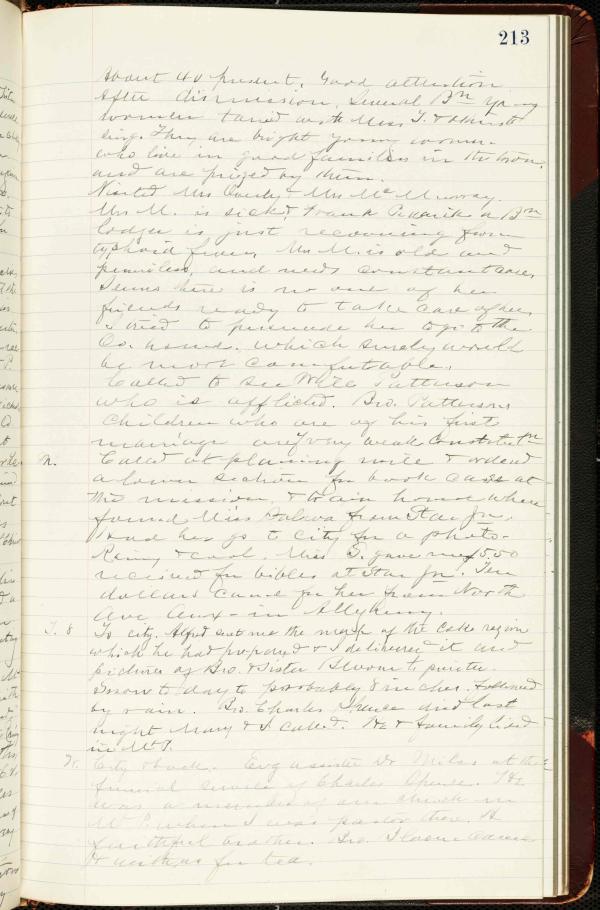 213
about 40 present. Good attention
After dismission, several Bn young
women tarried with Miss T. &
sing. They are bright young women
who live in good families in the town,
and are prized by them.
Visited Mrs & Mrs McMurray.
Mrs M. is sick & Frank a Bn
lodger is just recovering from
typhoid fever. Mrs M. is old and
penniless, and needs constant care,
Seems there is no one of her
friends ready to take care of her.
I tried to persuade her to go to the
Co. home, which surely would
be most comfortable.
Called to see Will Patterson
who is afflicted. Bro. Pattersons
children who are of his first
marriage are of very weak constitutn
M. Called at planing mill & ordered
a lower section for book case at
the mission, & train home where
found Miss from Star Jn.
Had her go to city for a photo-
& carol. Miss T. gave me $5.00
received for bibles at Star Jn. Ten
dollars came for her from North
Ave Aux- in Allegheny.
T. 8 To city. Alfred sent me the map of the Coke region
which he had prepared & I delivered it and
pictures of Bro. & Sister to printer.
Snow to day to probably 8 inches. followed
by rain. Bro. Charles Spence died last
night Mary & I called. He & family lived
in Mt P.
W. City & back. Evg assisted Dr Miles at the
funeral service of Charles Spence. He
was a member of our church in
Mt P. when I was pastor there. A
faithful brother. Bro.
& with us for tea.